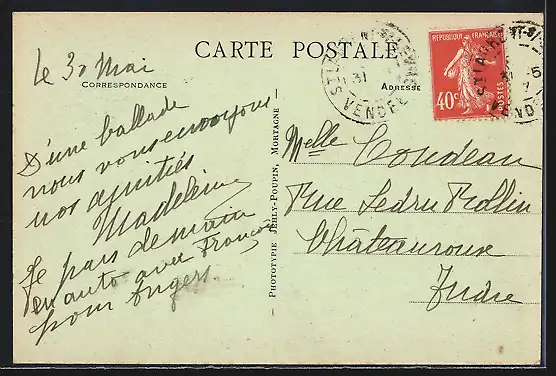 CARTE POSTALE
Le 30 Mai
CORRESPONDANCE
ADRESSE
REPUBLIQUE FRANÇAISE
40c
POSTES
VENDÉE
31
D'une ballade
nous vous envoyons
nos amitiés
Madeleine
Je pars demain
en auto avec Francis
pour Angers.
PHOTOTYPIE JEHLY-POUPIN, MORTAGNE
Melle Coudeau
Rue Ledru Rollin
Châteauroux
Indre